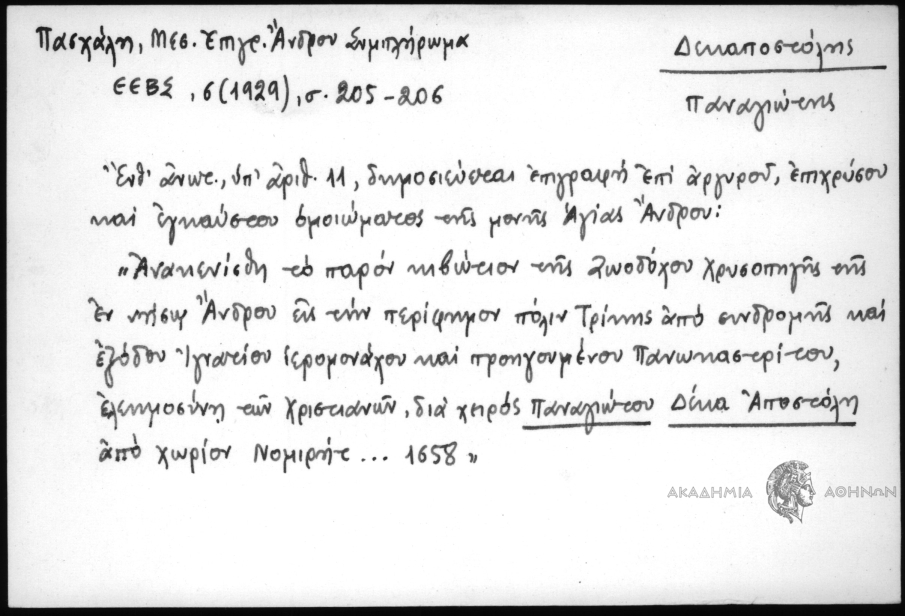 Πασχάλη, Μεσ. Ἐπιγρ. Ἄνδρου Συμπλήρωμα
ΕΕΒΣ, 6 (1929), σ. 205-206
Δεκαποστόλης
Παναγιώτης
Ἔνθ' ἄνωτ., ὑπ' ἀριθ. 11, δημοσιεύεται ἐπιγραφή ἐπί ἀργυροῦ, ἐπιχρύσου
καί ἐγκαύστου ὁμοιώματος τῆς μονῆς Ἁγίας Ἄνδρου:
"Ἀνακενίσθη τό παρόν κιβώτιον τῆς Ζωοδόχου Χρυσοπηγῆς τῆς
ἐν νήσῳ Ἄνδρου εἰς τήν περίφημον πόλιν Τρίκκης ἀπό συνδρομῆς καί
ἐξόδου Ἰγνατίου ἱερομονάχου καί προηγουμένου Πανωκαστρίτου,
ἐλεημοσύνη τῶν χριστιανῶν, διά χειρός Παναγιώτου Δέκα Ἀποστόλη
ἀπό χωρίον Νομιρήτ ... 1658"
ΑΚΑΔΗΜΙΑ ΑΘΗΝΩΝ